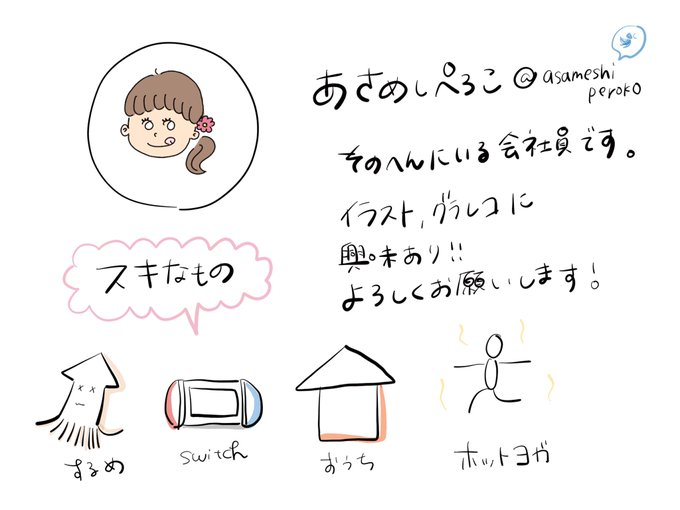 あさめしぺろこ @asameshi
peroko
そのへんにいる会社員です。
イラスト,グラレコに
興味あり!!
よろしくお願いします!
スキなもの
するめ
switch
おうち
ホットヨガ